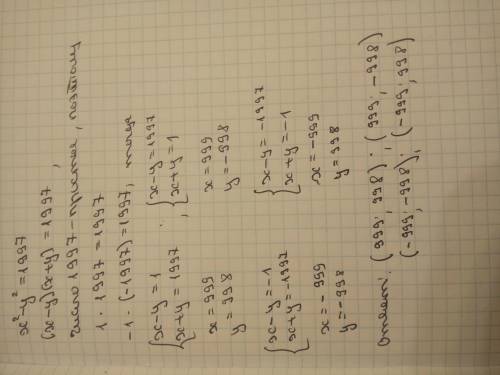 x²-y²=1997
(x-y)(x+y)=1997,
Число 1997 - простое, поэтому
1 · 1997 = 1997
-1 · (-1997) = 1997, тогда
{x-y=1 ; {x-y=1997
{x+y=1997 {x+y=1
x=999 x=999
y=998 y=-998
{x-y=-1 {x-y=-1997
{x+y=-1997 {x+y=-1
x=-999 x=-999
y=-998 y=998
Ответ: (999; 998); (999; -998)
(-999; -998); (-999; 998)